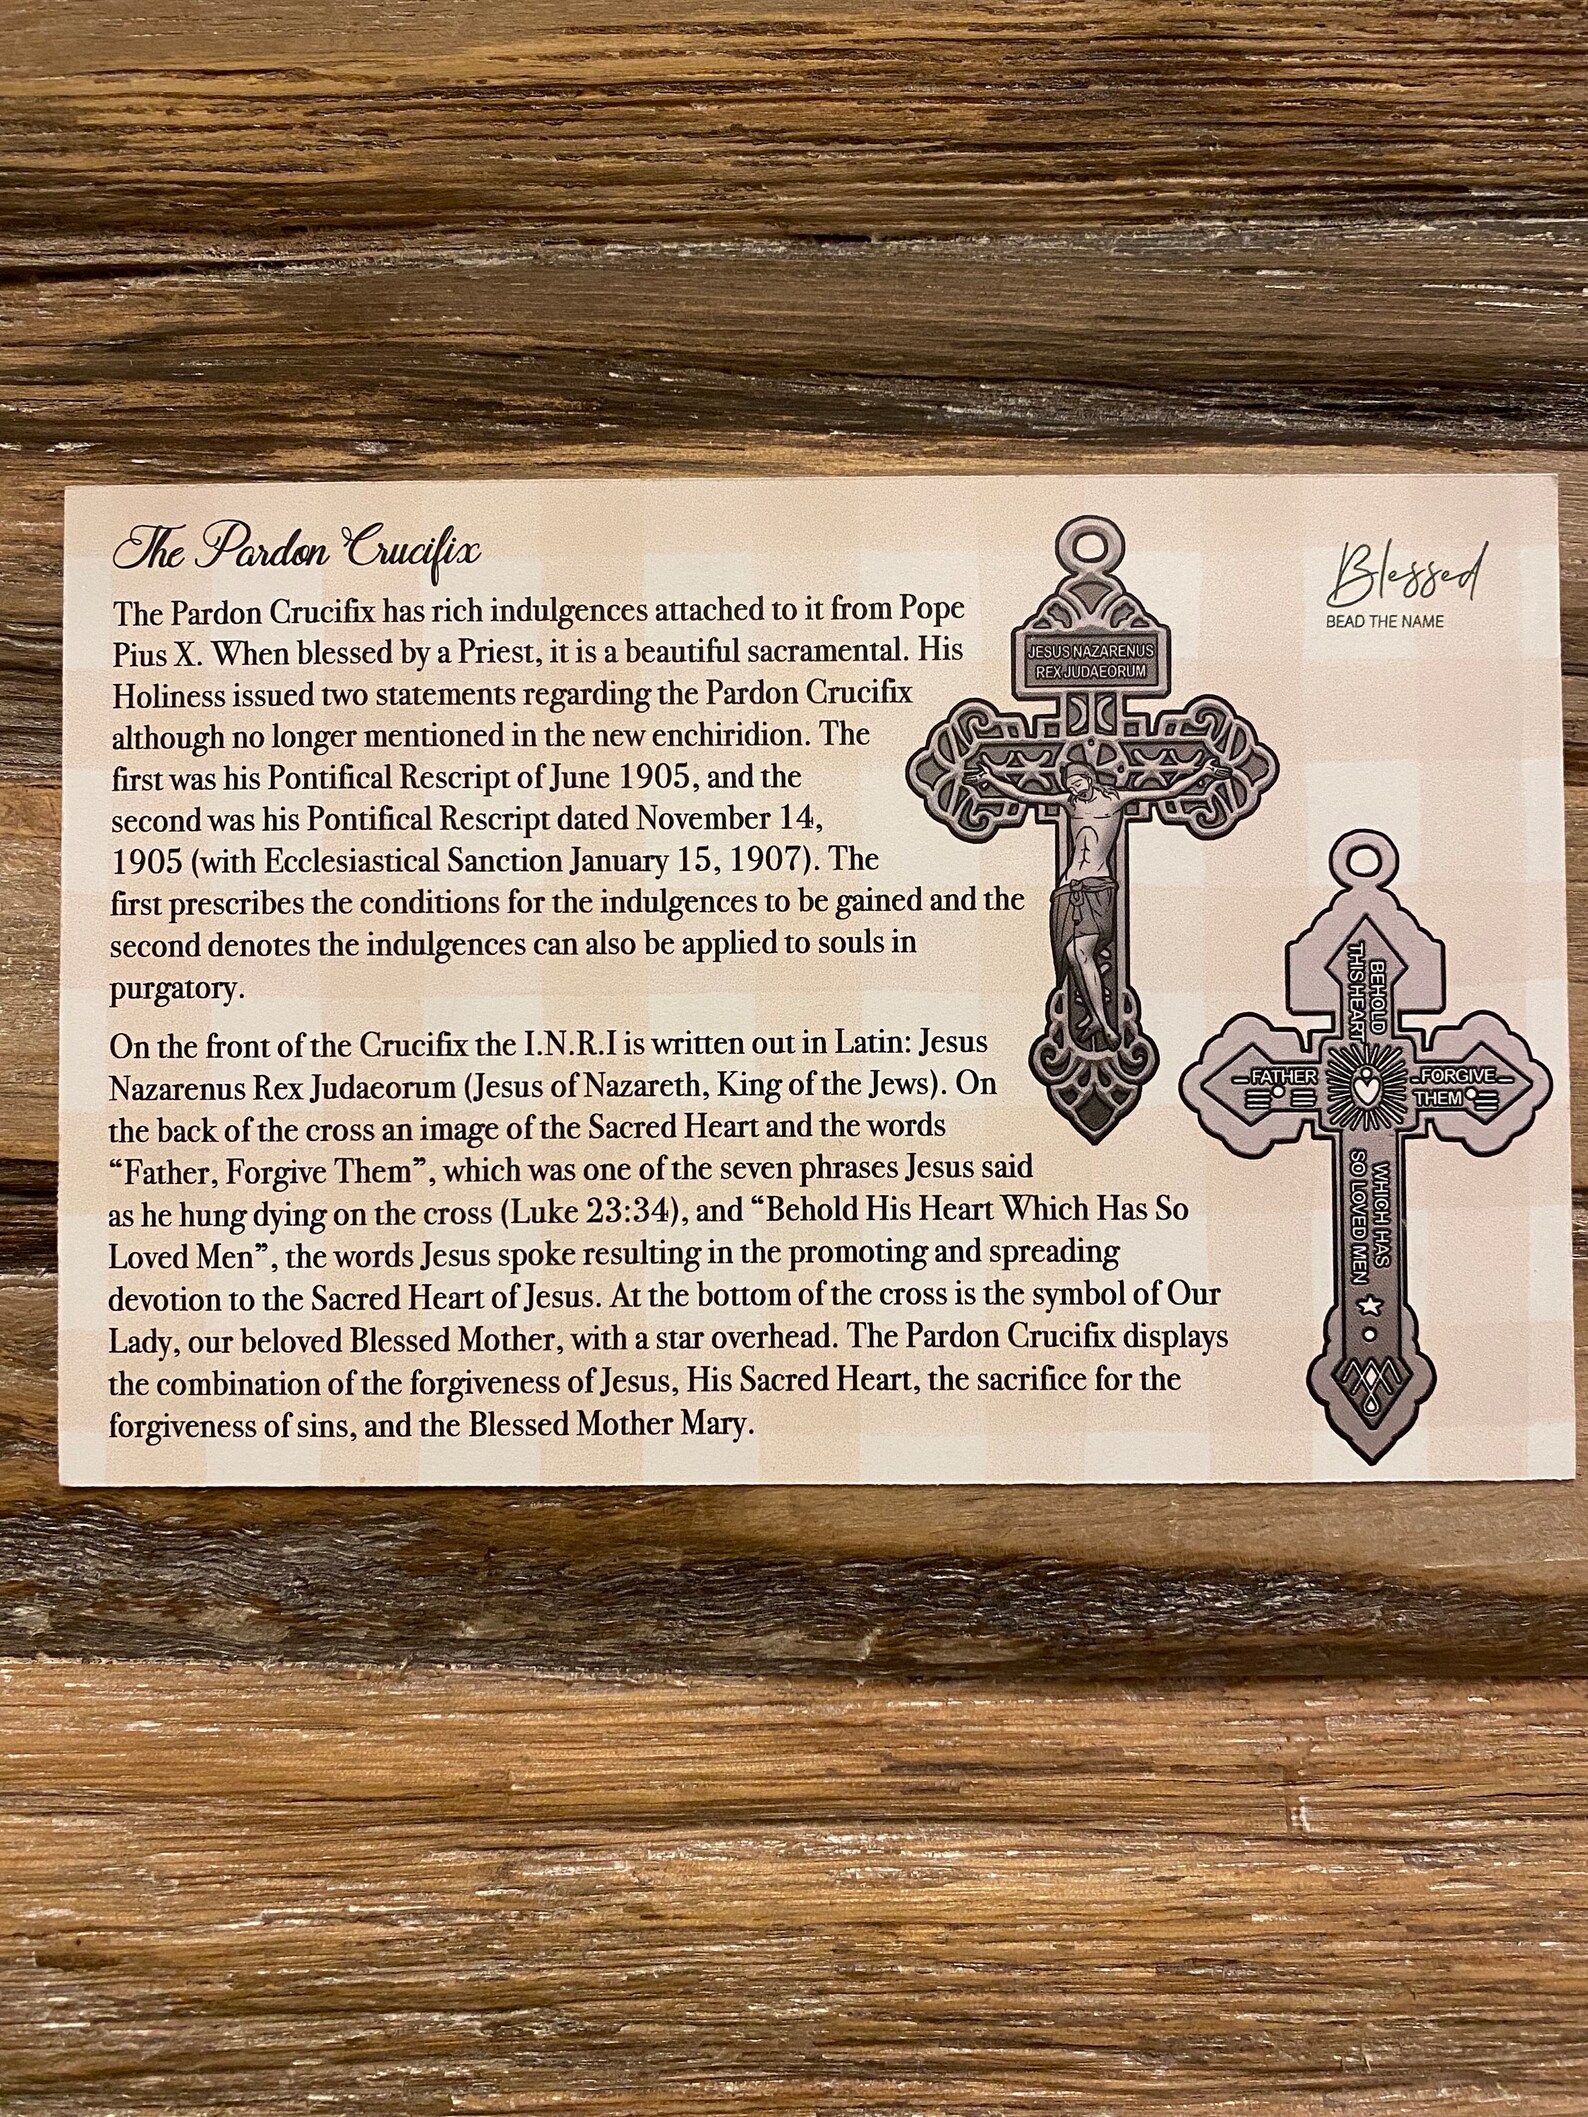 The Pardon Crucifix
The Pardon Crucifix has rich indulgences attached to it from Pope
Pius X. When blessed by a Priest, it is a beautiful sacramental. His
Holiness issued two statements regarding the Pardon Crucifix
although no longer mentioned in the new enchiridion. The
first was his Pontifical Rescript of June 1905, and the
second was his Pontifical Rescript dated November 14,
1905 (with Ecclesiastical Sanction January 15, 1907). The
first prescribes the conditions for the indulgences to be gained and the
second denotes the indulgences can also be applied to souls in
purgatory.
On the front of the Crucifix the I.N.R.I is written out in Latin: Jesus
Nazarenus Rex Judaeorum (Jesus of Nazareth, King of the Jews). On
the back of the cross an image of the Sacred Heart and the words
“Father, Forgive Them”, which was one of the seven phrases Jesus said
as he hung dying on the cross (Luke 23:34), and “Behold His Heart Which Has So
Loved Men”, the words Jesus spoke resulting in the promoting and spreading
devotion to the Sacred Heart of Jesus. At the bottom of the cross is the symbol of Our
Lady, our beloved Blessed Mother, with a star overhead. The Pardon Crucifix displays
the combination of the forgiveness of Jesus, His Sacred Heart, the sacrifice for the
forgiveness of sins, and the Blessed Mother Mary.
JESUS NAZARENUS
REX JUDAEORUM
Blessed
BEAD THE NAME
BEHOLD
THIS HEART
FATHER
FORGIVE
THEM
WHICH HAS
SO LOVED MEN